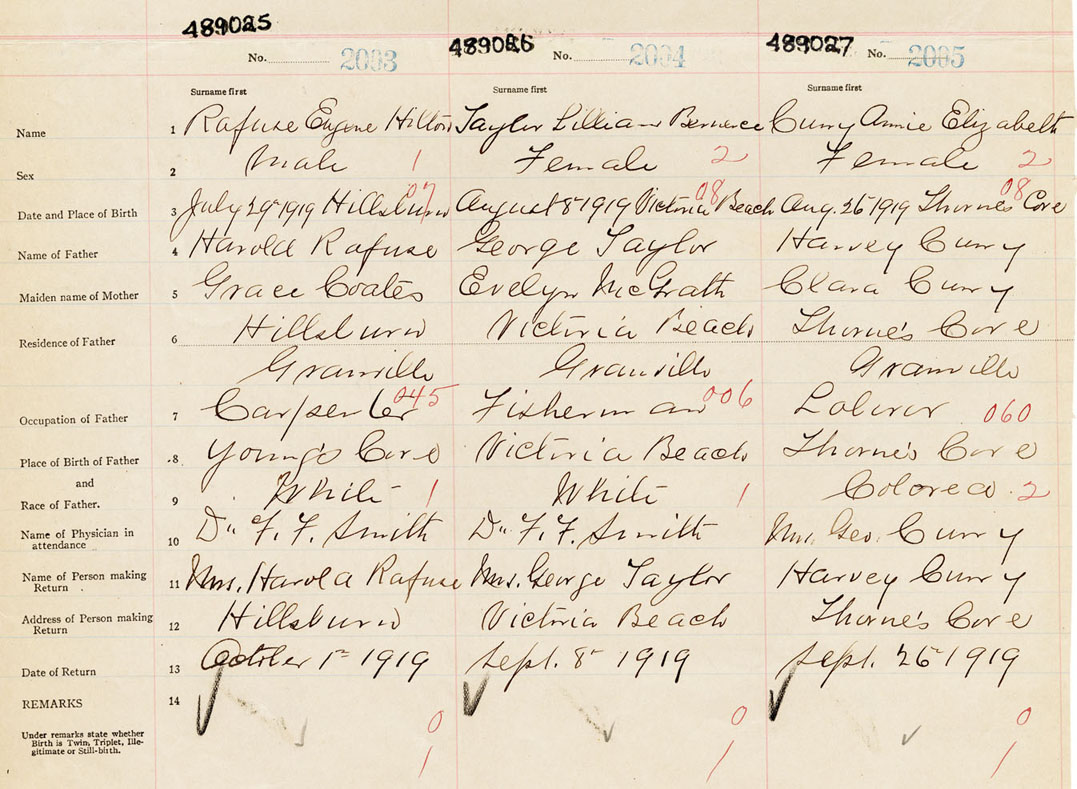 489025 489026 489027
No. 2003 No. 2004 No. 2005
Surname first Surname first Surname first
Name 1 Rafuse Eugene Hilton Taylor Lillian Bernerce Curry Annie Elizabeth
Sex 2 Male 1 Female 2 Female 2
07 08 08
Date and Place of Birth 3 July 29th 1919 Hillsburn August 8th 1919 Victoria Beach Aug. 26th 1919 Thorne's Cove
Name of Father 4 Harold Rafuse George Taylor Harvey Curry
Maiden name of Mother 5 Grace Coates Evelyn McGrath Clara Curry
Residence of Father 6 Hillsburn Victoria Beach Thorne's Cove
Granville Granville Granville
Occupation of Father 7 Carpenter 045 Fisherman 006 Laborer 060
Place of Birth of Father 8 Young's Cove Victoria Beach Thorne's Cove
and
Race of Father. 9 White 1 White 1 Colored 2
Name of Physician in
attendance 10 Dr. F. F. Smith Dr. F. F. Smith Mrs. Geo. Curry
Name of Person making
Return 11 Mrs. Harold Rafuse Mrs. George Taylor Harvey Curry
Address of Person making
Return 12 Hillsburn Victoria Beach Thorne's Cove
Date of Return 13 October 1st 1919 Sept. 8th 1919 Sept. 26th 1919
REMARKS 14
0 0 0
Under remarks state whether
Birth is Twin, Triplet, Ille-
gitimate or Still-birth.
1 1 1